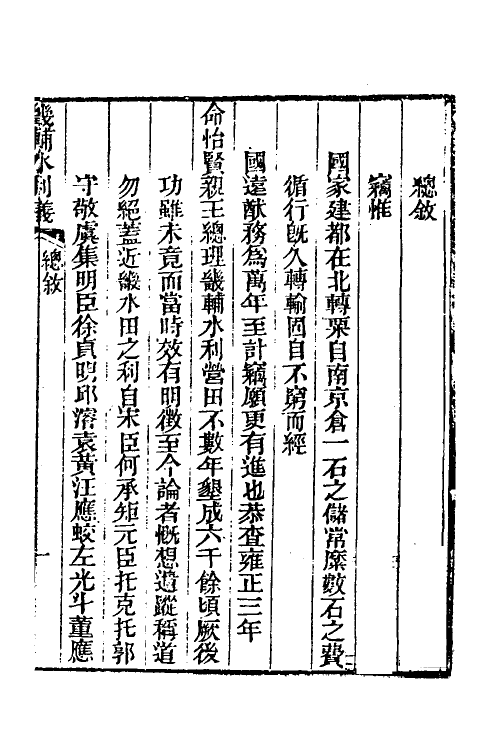 總敘
竊惟
國家建都在北轉粟自南京倉一石之儲常糜數石之費
循行旣久轉輸固自不窮而經
國遠猷務爲萬年至計竊願更有進也恭查雍正三年
命怡賢親王總理畿輔水利營田不數年墾成六千餘頃厥後
功雖未竟而當時效有明徵至今論者慨想遺蹤稱道
勿絕蓋近畿水田之利自宋臣何承矩元臣托克托郭
守敬虞集明臣徐貞明邱濬袁黃汪應蛟左光斗董應
畿輔水利義
總敘
一